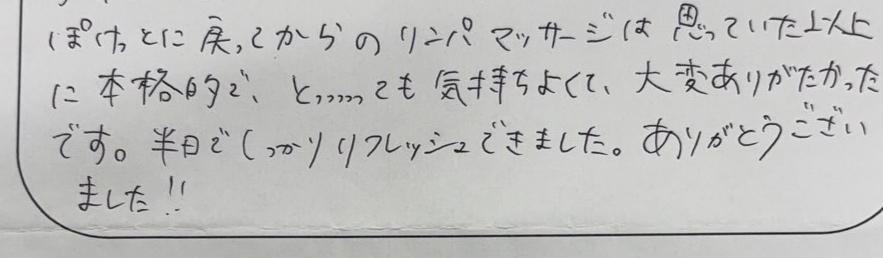 ぽけっとに戻ってからのリンパマッサージは思っていた以上に
に本格的で、とっっっっっても気持ちよくて、大変ありがたかった
です。半日でしっかりリフレッシュできました。ありがとうござい
ました!!